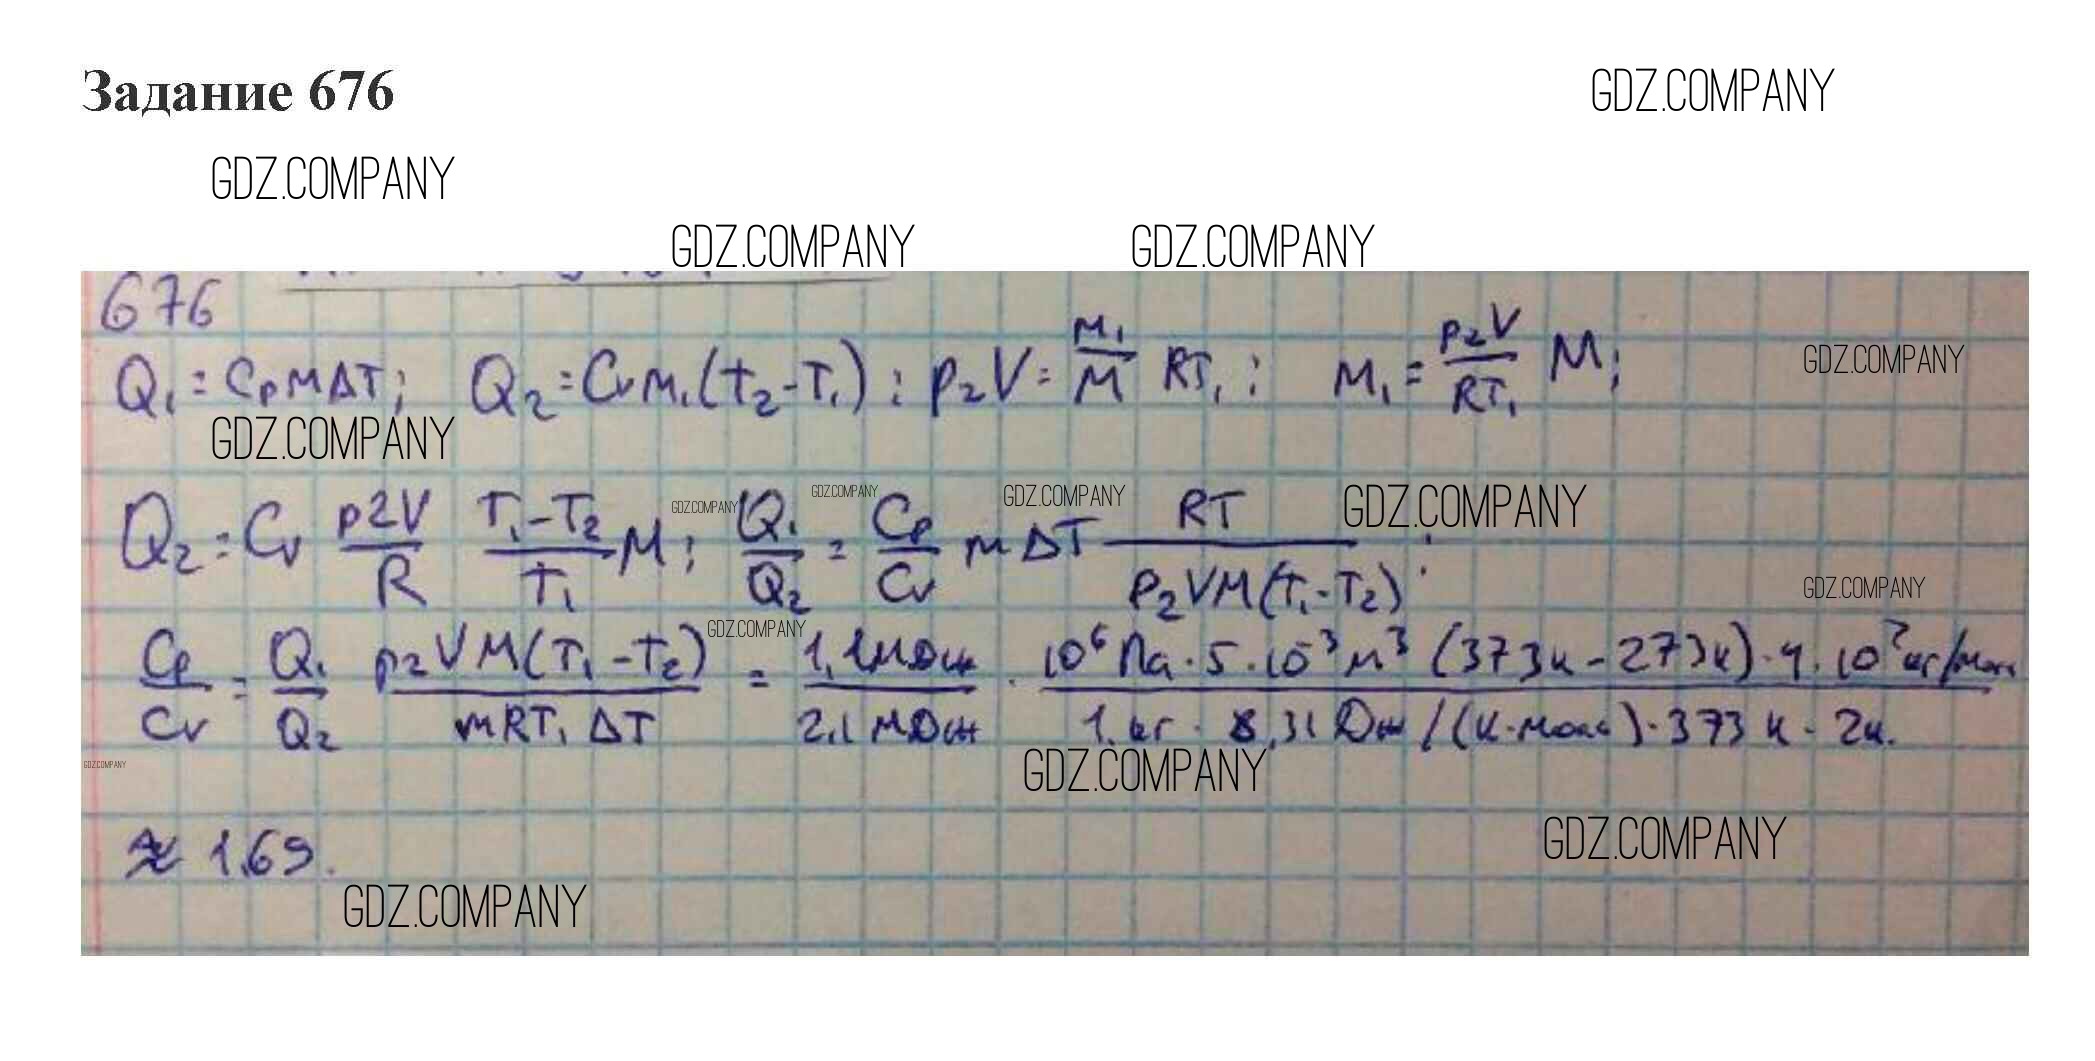 Задание 676
GDZ.COMPANY
GDZ.COMPANY
GDZ.COMPANY GDZ.COMPANY
676
Q₁ = Cp m ΔT; Q₂ = Cv m₁ (t₂ - T₁); p₂V = m₁/M RT₁; m₁ = p₂V/RT₁ M;
GDZ.COMPANY
GDZ.COMPANY
Q₂ = Cv p2V/R T₁-T₂/T₁ M; Q₁/Q₂ = Cp/Cv m ΔT RT/p₂VM(T₁-T₂);
GDZ.COMPANY GDZ.COMPANY GDZ.COMPANY GDZ.COMPANY
GDZ.COMPANY
GDZ.COMPANY
Cp/Cv = Q₁/Q₂ p₂VM(T₁-T₂)/mRT₁ΔT = 1,1МДж/2,1МДж · 10⁶Па·5·10⁻³м³(373к-273к)·4·10² кг/моль/1.кг·8,31Дж/(к·моль)·373к·2к.
GDZ.COMPANY
GDZ.COMPANY
≈ 1.69.
GDZ.COMPANY
GDZ.COMPANY